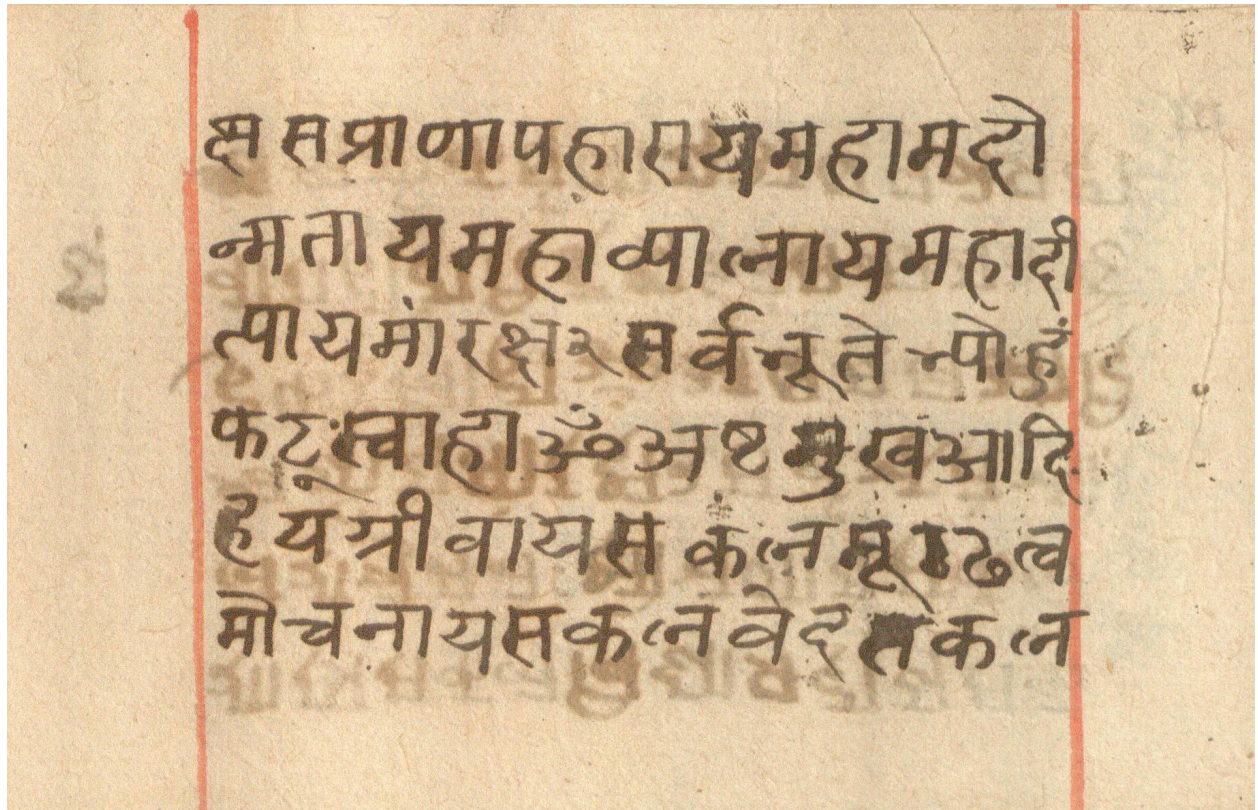 क्षसप्राणापहारायमहामदो
न्मतायमहाव्यालायमहादी
त्यायमांरक्षर२सर्वभूतेभ्योहुं
फट्स्वाहाॐअष्टमुखआदि
हयग्रीवायसकलमूढत्व
मोचनायसकलवेदसकल